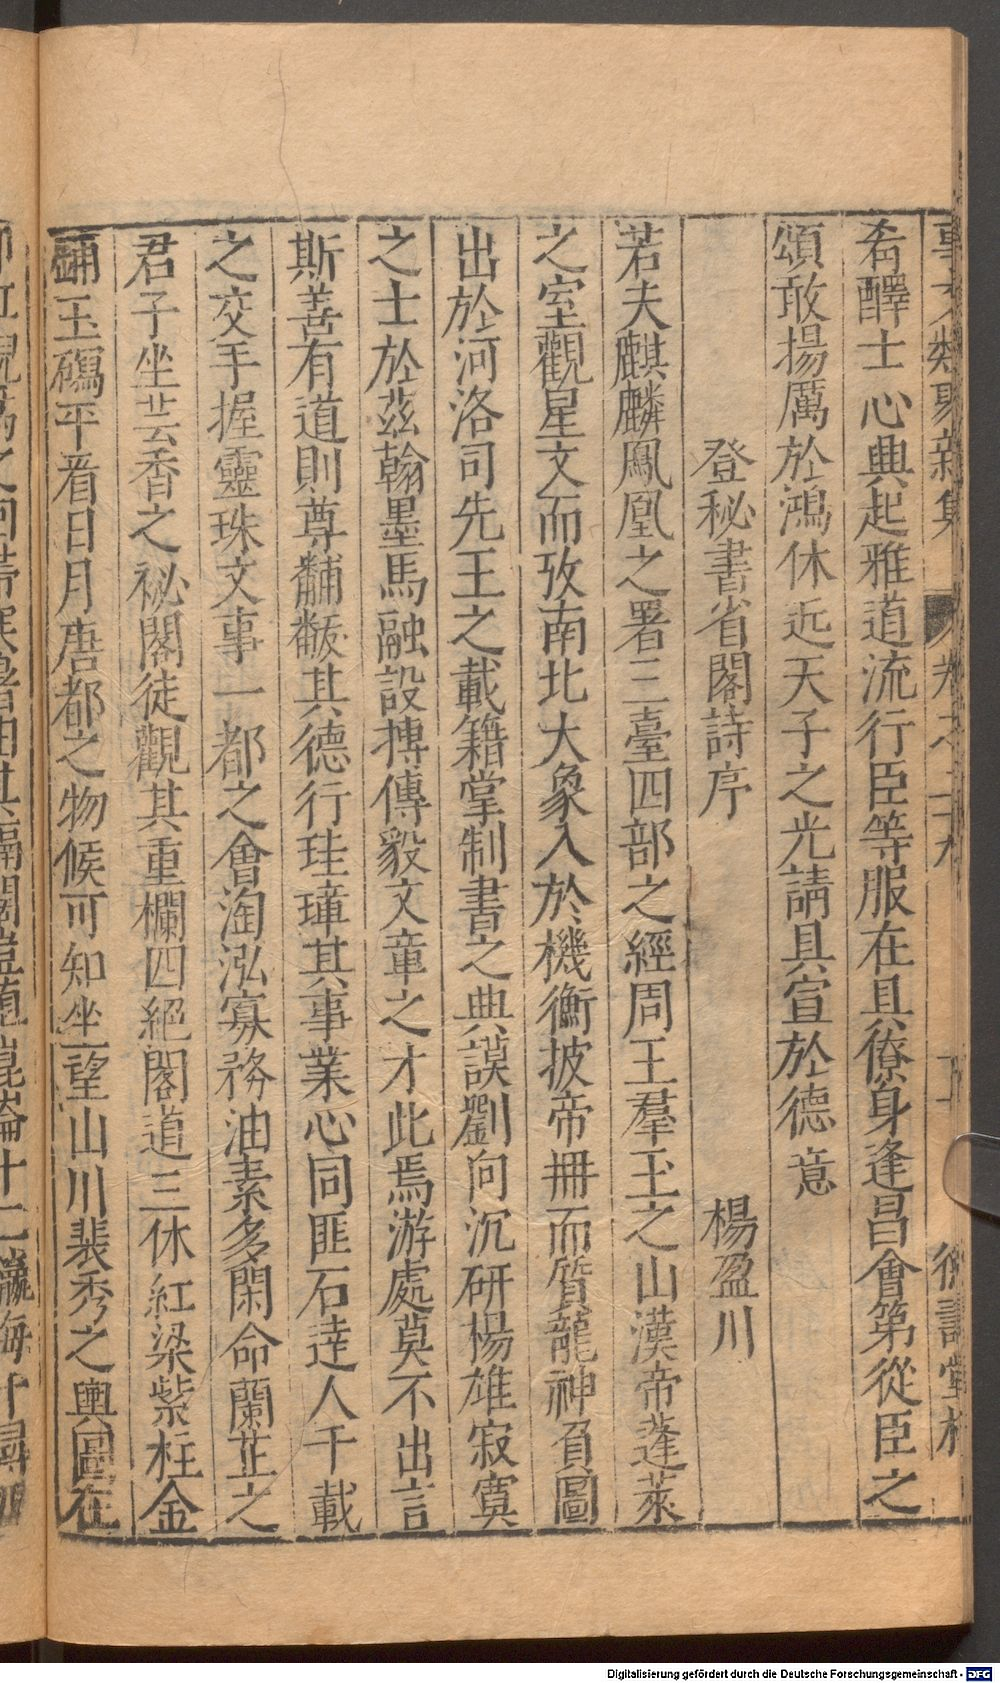 矞醳士心興起雅道流行臣等服在具僚身逢昌會第從臣之
頌敢揚厲於鴻休近天子之光請具宣於德意
登秘書省閣詩序
楊盈川
若夫麒麟鳳凰之署三臺四部之經周王羣玉之山漢帝蓬萊
之室觀星文而攷南北大象入於機衡披帝冊而質龍神負圖
出於河洛司先王之載籍掌制書之典謨劉向沉研楊雄寂寞
之士於茲翰墨馬融設摶傳毅文章之才此焉游處莫不出言
斯善有道則尊黼黻其德行珪璋其事業心同匪石達人千載
之交手握靈珠文事一都之會淘泓寡務油素多閑命蘭芷之
君子坐芸香之祕閣徒觀其重欄四絕閣道三休紅梁紫柱金
鋪玉磶平看日月唐都之物候可知坐望山川裴秀之輿圖在
Digitalisierung gefördert durch die Deutsche Forschungsgemeinschaft - DFG